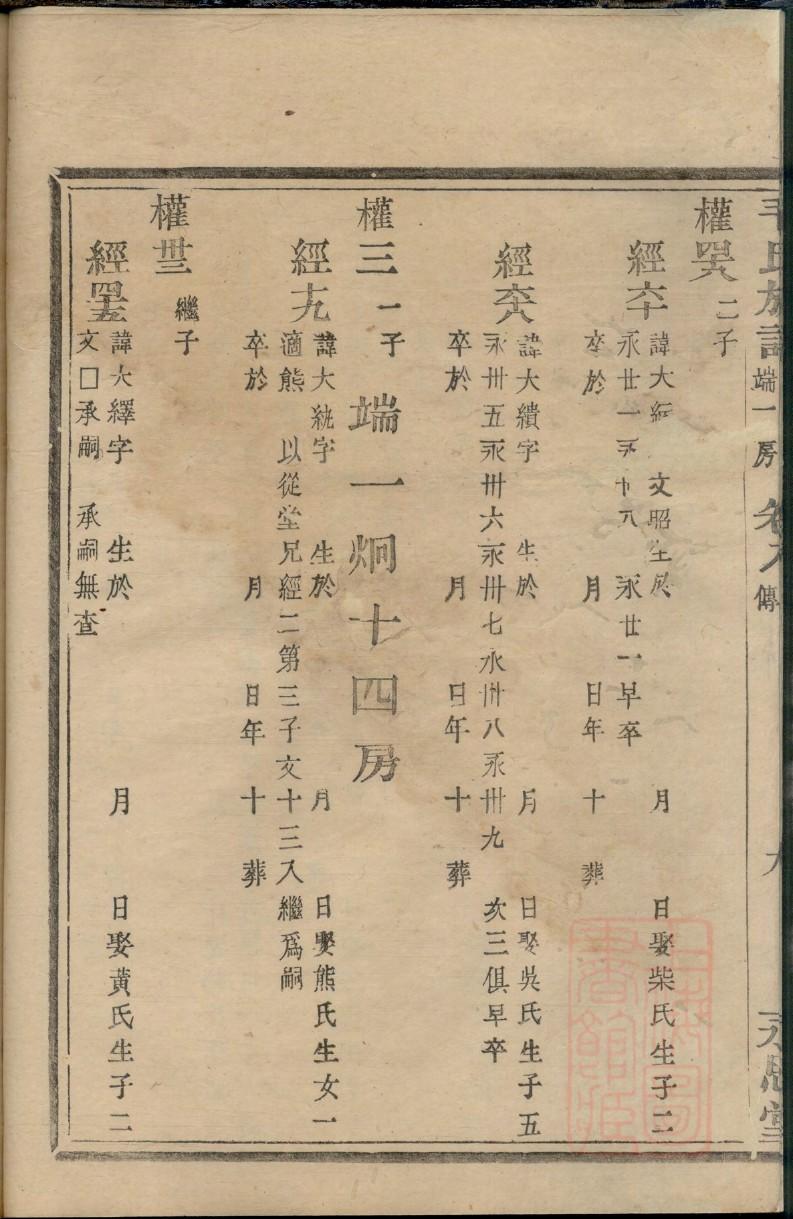 氏族譜 端一房 卷 傳 永思堂
權四八 二子
經六十
諱大經 文昭生於 月 日娶柴氏生子二
永廿一 永廿一早卒
卒於 月 日年 十 葬
經六八
諱大續字 生於 月 日娶吳氏生子五
永卅五永卅六永卅七永卅八永卅九 次三俱早卒
卒於 月 日年 十 葬
端一炯十四房
權三 一子
經十九
諱大統字 生於 月 日娶熊氏生女一
適熊 以從堂兄經二第三子文十三入繼爲嗣
卒於 月 日年 十 葬
權卅三 繼子
經四五
諱大繹字 生於 月 日娶黃氏生子二
文□承嗣 承嗣無查